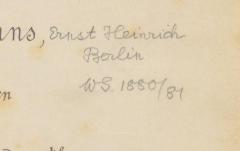 ans, Ernst Heinrich
Berlin
WS. 1880/81
en